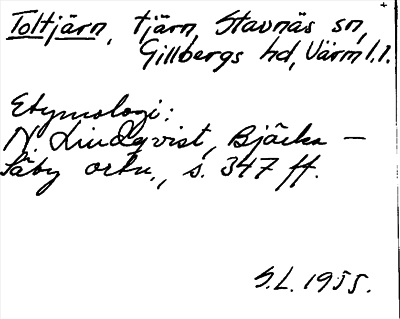 Toltjärn, tjärn, Stavnäs sn,
Gillbergs hd, Värml. l.
Etymologi:
N. Lindqvist, Bjärka –
Säby ortn., s. 347 ff.
S.L. 1955.